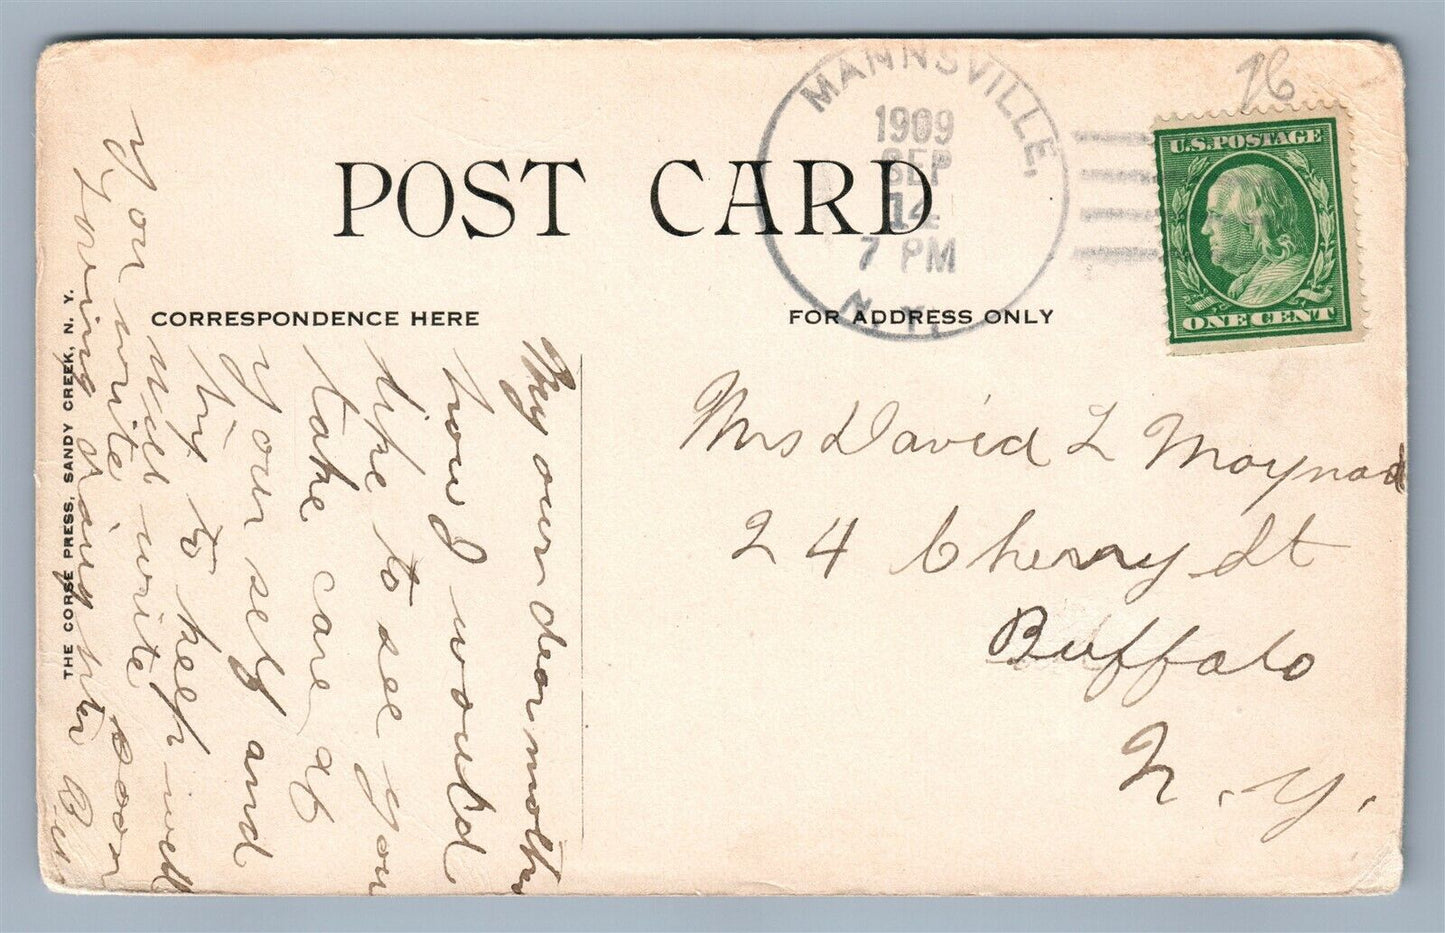 MANNSVILLE,
1909
SEP
14
7 PM
N.Y.
26
U.S. POSTAGE
ONE CENT
POST CARD
CORRESPONDENCE HERE
FOR ADDRESS ONLY
THE CORSE PRESS, SANDY CREEK, N. Y.
My own dear mother
how I would
like to see you
take care of
your self and
try to keep well
will write soon
you write
your loving daughter
Mrs David L Maynard
24 Cherry St
Buffalo
N.Y.